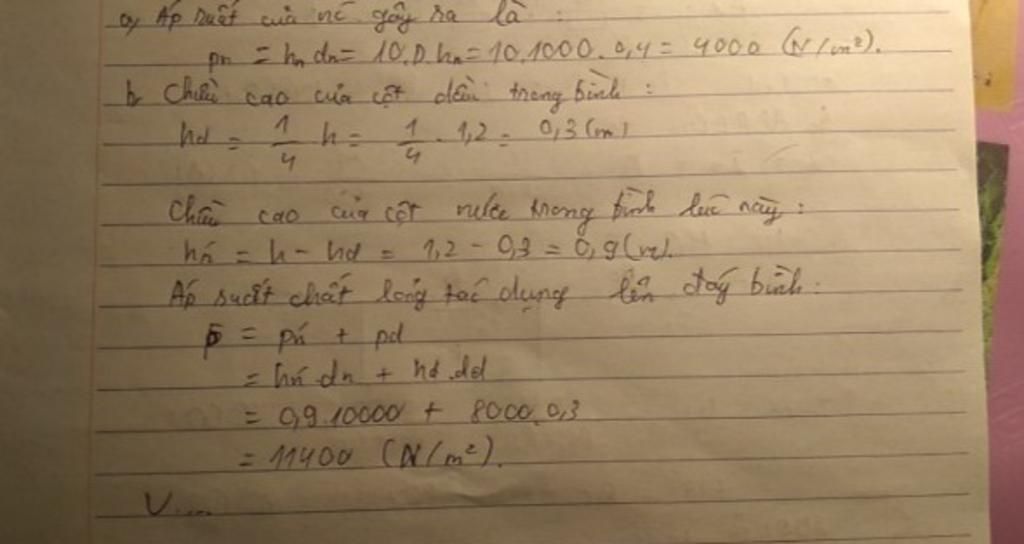 a, Áp suất của nc gây ra là :
pn = hn dn = 10.D.hn = 10.1000.0,4 = 4000 (N/m²).
b, Chiều cao của cột dầu trong bình :
hd = 1/4 h = 1/4 . 1,2 = 0,3 (m)
Chiều cao của cột nước trong bình lúc này :
hń = h - hd = 1,2 - 0,3 = 0,9 (m).
Áp suất chất lỏng tác dụng lên đáy bình :
p = pń + pd
= hń.dn + hd.dd
= 0,9.10000 + 8000.0,3
= 11400 (N/m²).
V....